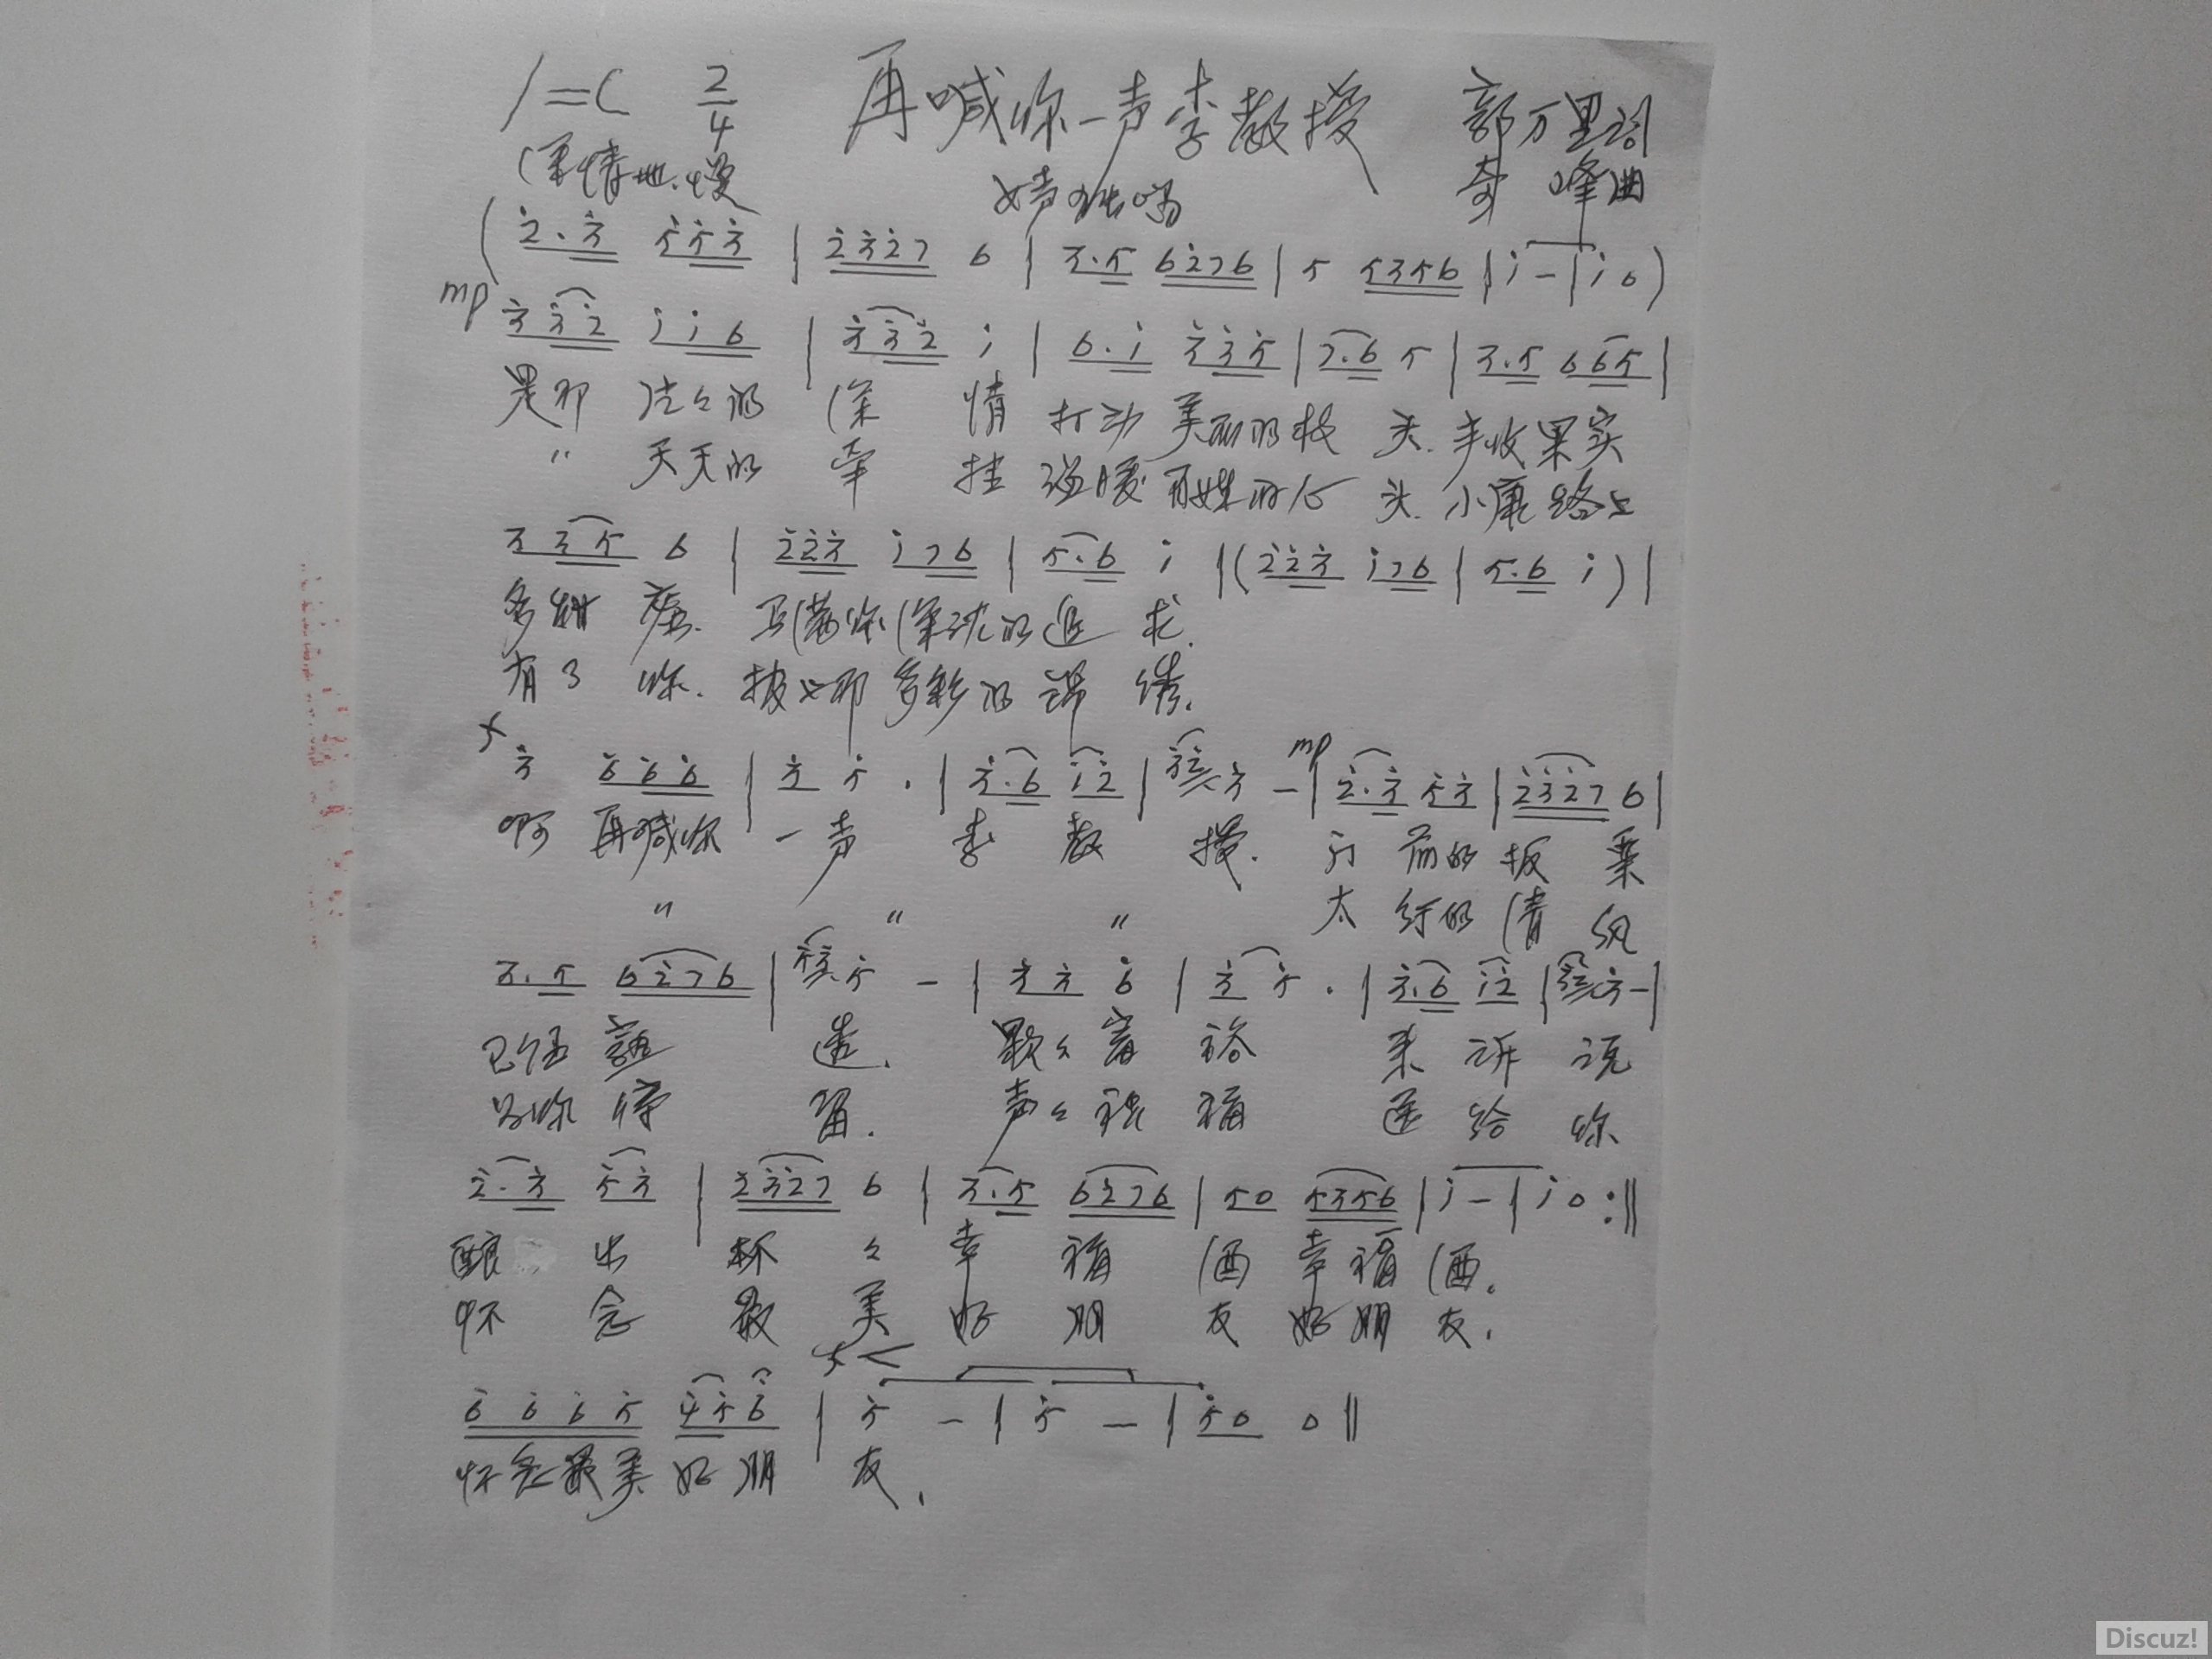 1=C 2/4 再喊你一声李教授 郭万里词
(深情地.慢 女声独唱 奇峰曲
(2̇.3̇ 5̇5̇3̇ | 2̇3̇2̇7 6 | 3.5 62̇76 | 5 5356 | 1̇ - | 1̇ 0)
mp 3̇3̇2̇ 1̇1̇6 | 3̇3̇2̇ 1̇ | 6.1̇ 3̇3̇5̇ | 7.6 5 | 3.5 665 |
是那 的 深 情 打动 美丽的枝 头.丰收果实
" 天天的 牵 挂 温暖 的心 头.小康路上
3 35 6 | 2̇2̇3̇ 1̇76 | 5.6 1̇ | (2̇2̇3̇ 1̇76 | 5.6 1̇) |
写满你深沉的追 求.
有了 你. 披上那多彩的锦 绣.
f 3̇ 6̇6̇6̇ | 3̇ 5̇ . | 3̇.6 1̇2̇ | 3̇ - | mp 2̇.3̇ 5̇3̇ | 2̇3̇2̇7 6 |
啊 再喊你 一声 李 教 授. 前的板 栗
" " " 太 行的 清 风
3.5 62̇76 | 5̇ - | 3̇ 3̇ 6̇ | 3̇ 5̇ . | 3̇.6 1̇2̇ | 3̇ - |
已经 熟 透. 颗々 富 裕 来 诉 说
为你 停 留. 声々 祝 福 送 给 你
2̇.3̇ 5̇3̇ | 2̇3̇2̇7 6 | 3.5 62̇76 | 50 5356 | 1̇ - | 1̇ 0 :‖
酿 出 杯 々 幸 福 酒 幸 福 酒.
怀 念 最 美 好 朋 友 好 朋 友.
f <
6̇ 6̇ 6̇ 5̇ 4̇5̇6̇ | 5̇ - | 5̇ - | 5̇0 0 ‖
怀念最美 好 朋 友.
Discuz!